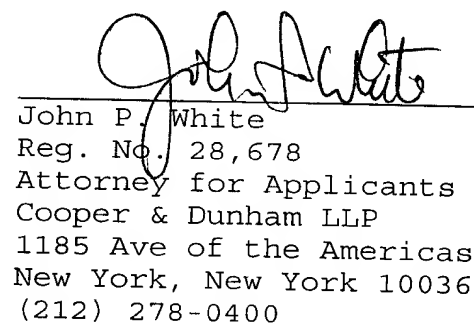 John P. White
John P. White
Reg. No. 28,678
Attorney for Applicants
Cooper & Dunham LLP
1185 Ave of the Americas
New York, New York 10036
(212) 278-0400